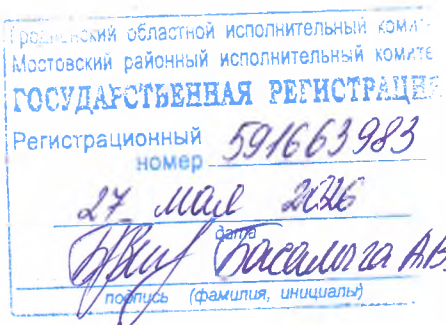 Гродненский областной исполнительный коми
Мостовский районный исполнительный комите
ГОСУДАРСТВЕННАЯ РЕГИСТРАЦИЯ
Регистрационный
номер 591663983
27 мая 2026
дата
Басалыга А.В.
подпись (фамилия, инициалы)